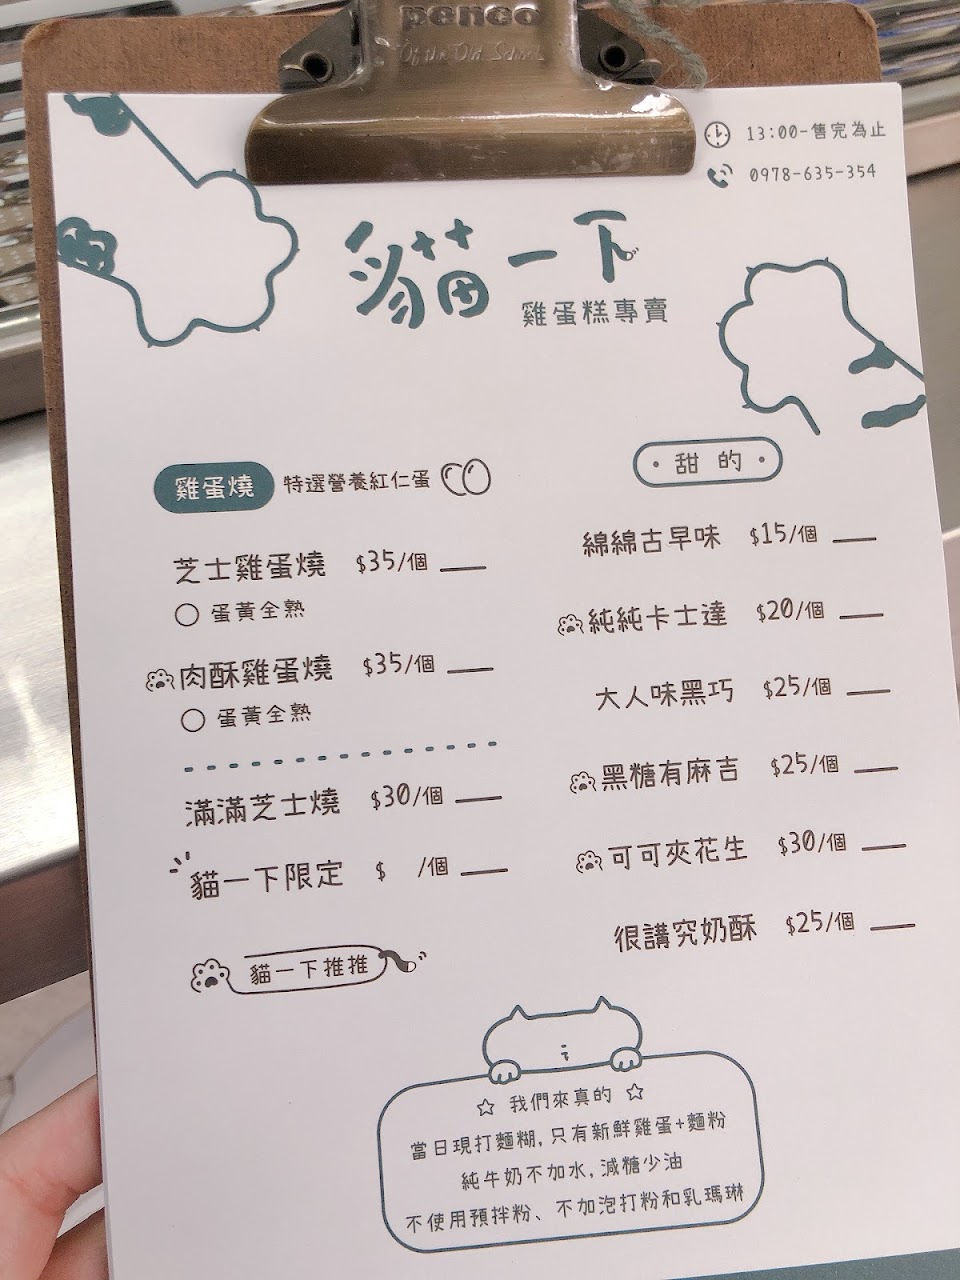 penco
Of the Old School
13:00-售完為止
0978-635-354
貓一下
雞蛋糕專賣
雞蛋燒 特選營養紅仁蛋
芝士雞蛋燒 $35/個
蛋黃全熟
肉酥雞蛋燒 $35/個
蛋黃全熟
滿滿芝士燒 $30/個
貓一下限定 $ /個
貓一下推推
·甜的·
綿綿古早味 $15/個
純純卡士達 $20/個
大人味黑巧 $25/個
黑糖有麻吉 $25/個
可可夾花生 $30/個
很講究奶酥 $25/個
☆ 我們來真的 ☆
當日現打麵糊,只有新鮮雞蛋+麵粉
純牛奶不加水,減糖少油
不使用預拌粉、不加泡打粉和乳瑪琳